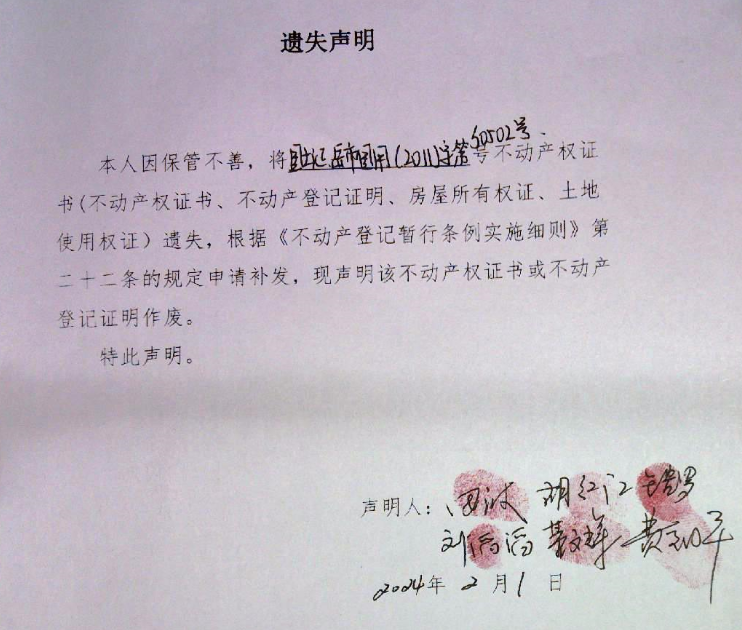 遗失声明
本人因保管不善，将岳市国用(2011)字第S0502号号不动产权证
书(不动产权证书、不动产登记证明、房屋所有权证、土地
使用权证）遗失，根据《不动产登记暂行条例实施细则》第
二十二条的规定申请补发，现声明该不动产权证书或不动产
登记证明作废。
特此声明。
声明人： 胡红江
刘
2024年2月1日